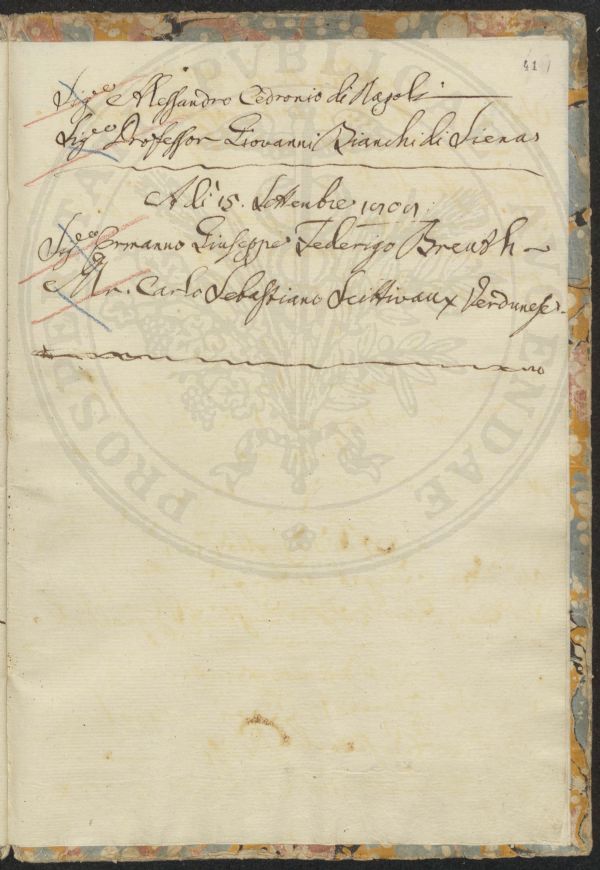 41
Sig.re Alessandro Cedronio di Napoli
Sig.re Professor Giovanni Bianchi di Siena
A dì 15. Settenbre
Sig.re Ermanno Giuseppe Federigo
Mr. Carlo Sebastiano Verdunese.
PUBLICAE
PROSPERITATI AUGENDAE